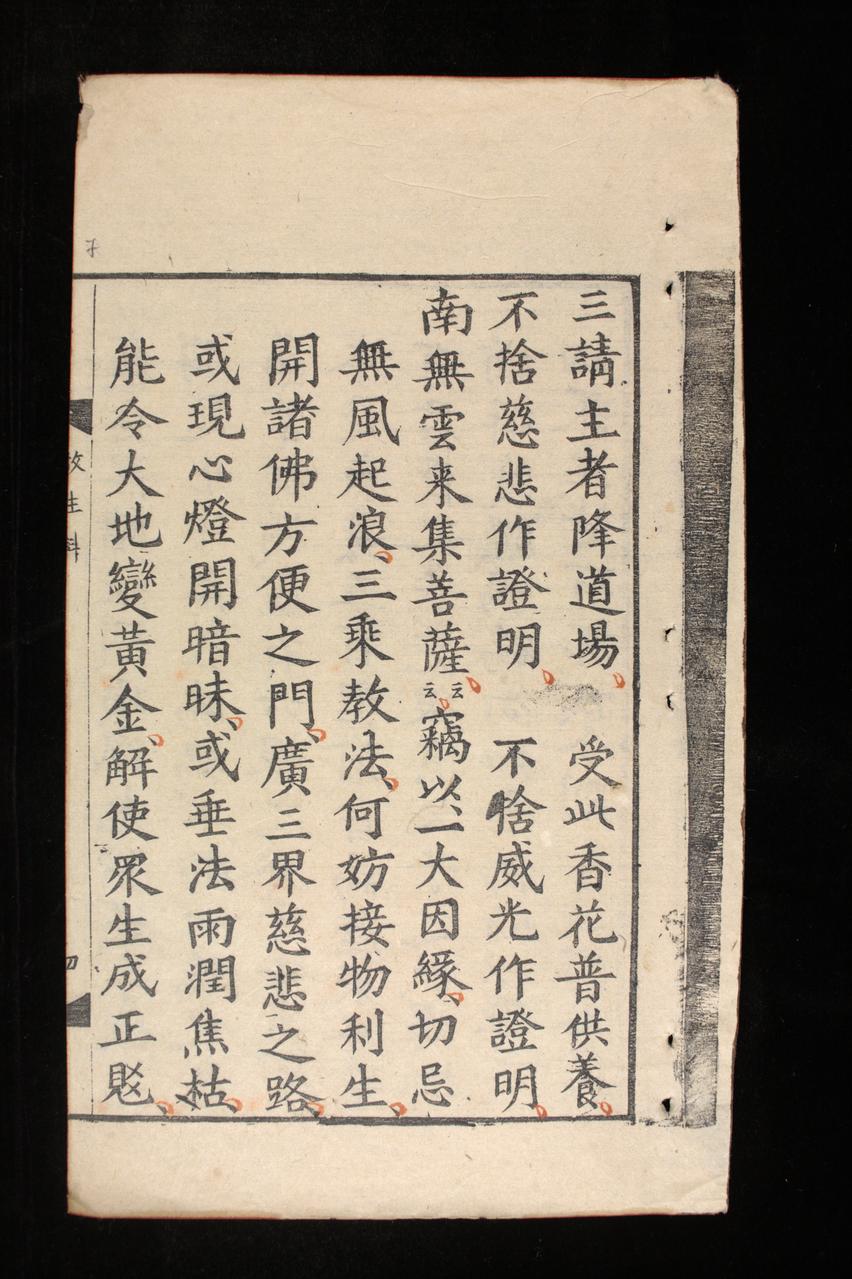 三請主者降道場、　受此香花普供養、
不捨慈悲作證明、　不捨威光作證明、
南無雲来集菩薩、云云、竊以、一大因緣、切忌
無風起浪、三乘教法、何妨接物利生、
開諸佛方便之門、廣三界慈悲之路、
或現心燈開暗昧、或垂法雨潤焦枯、
能令大地變黃金、解使眾生成正覍、
放生科